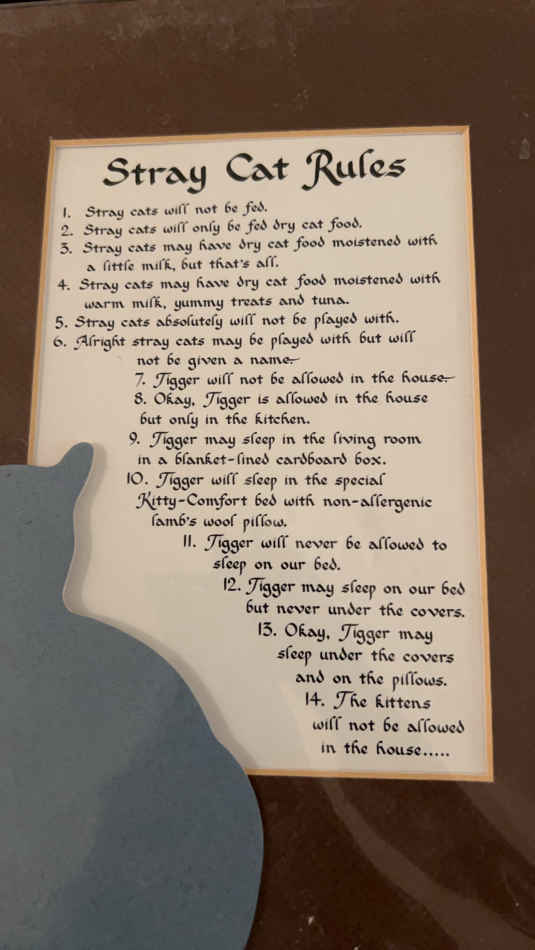 Stray Cat Rules
1. Stray cats will not be fed.
2. Stray cats will only be fed dry cat food.
3. Stray cats may have dry cat food moistened with
a little milk, but that's all.
4. Stray cats may have dry cat food moistened with
warm milk, yummy treats and tuna.
5. Stray cats absolutely will not be played with.
6. Alright stray cats may be played with but will
not be given a name.
7. Tigger will not be allowed in the house.
8. Okay, Tigger is allowed in the house
but only in the kitchen.
9. Tigger may sleep in the living room
in a blanket-lined cardboard box.
10. Tigger will sleep in the special
Kitty-Comfort bed with non-allergenic
lamb's wool pillow.
11. Tigger will never be allowed to
sleep on our bed.
12. Tigger may sleep on our bed
but never under the covers.
13. Okay, Tigger may
sleep under the covers
and on the pillows.
14. The kittens
will not be allowed
in the house.....